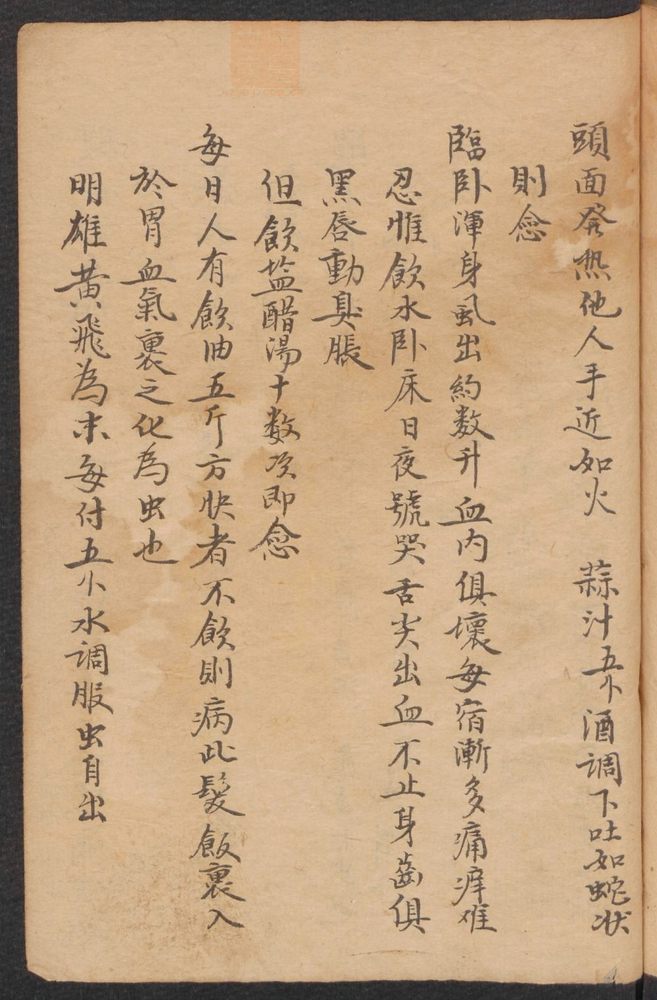 頭面發热他人手近如火　蒜汁五小酒調下吐如蛇状
則念
臨卧渾身虱出約数升血内俱壞每宿漸多痛痒难
忍惟飲水卧床日夜號哭舌尖出血不止身齒俱
黑唇動臭脹
但飲盐醋湯十数次即念
每日人有飲油五斤方快者不飲則病此髮飯裏入
於胃血氣裹之化為虫也
明雄黄飛為末每付五小水調服虫自出